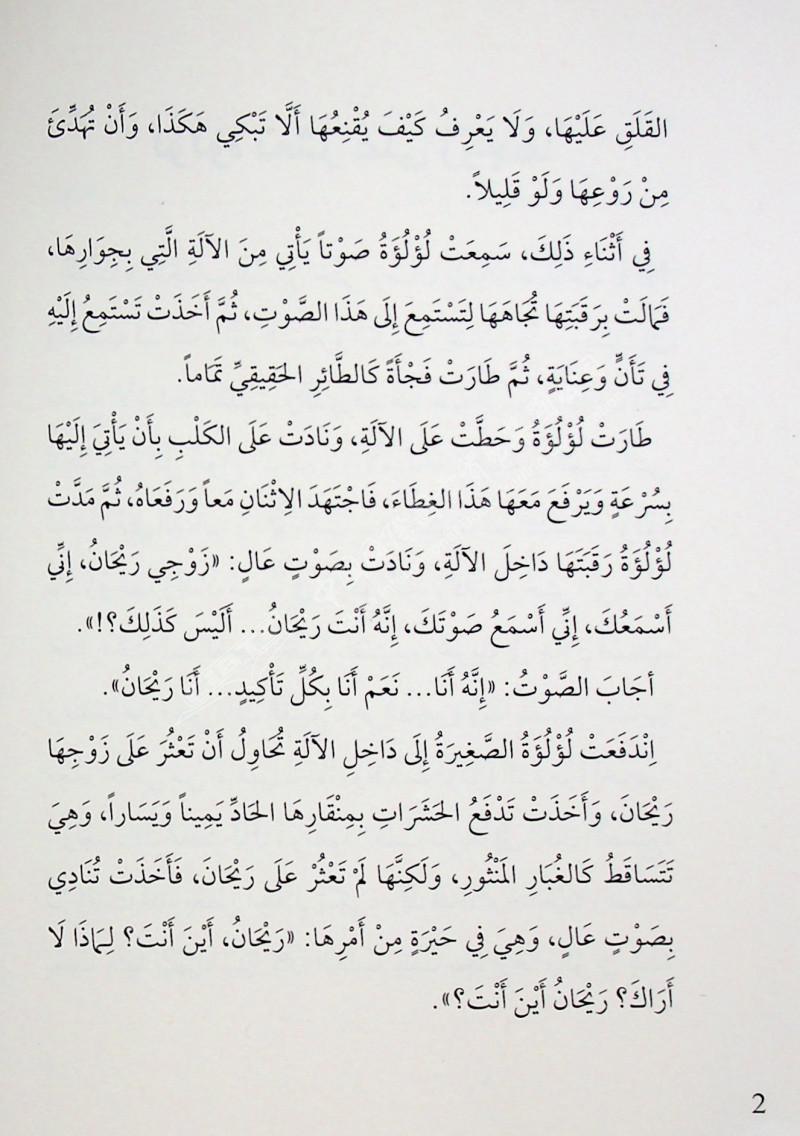 القَلَقِ عَلَيْهَا، وَلَا يَعْرِفُ كَيْفَ يُقْنِعُهَا أَلَّا تَبْكِي هَكَذَا، وَأَنْ تُهَدِّئَ
مِنْ رَوْعِهَا وَلَوْ قَلِيلاً.
فِي أَثْنَاءِ ذَلِكَ، سَمِعَتْ لُؤْلُؤَةُ صَوْتاً يَأْتِي مِنَ الآلَةِ الَّتِي بِجِوَارِهَا،
فَمَالَتْ بِرَقَبَتِهَا تُجَاهَهَا لِتَسْتَمِعَ إِلَى هَذَا الصَّوْتِ، ثُمَّ أَخَذَتْ تَسْتَمِعُ إِلَيْهِ
فِي تَأَنٍّ وَعِنَايَةٍ، ثُمَّ طَارَتْ فَجْأَةً كَالطَّائِرِ الحَقِيقِيِّ تَمَاماً.
طَارَتْ لُؤْلُؤَةُ وَحَطَّتْ عَلَى الآلَةِ، وَنَادَتْ عَلَى الكَلْبِ بِأَنْ يَأْتِيَ إِلَيْهَا
بِسُرْعَةٍ وَيَرْفَعَ مَعَهَا هَذَا الغِطَاءَ، فَاجْتَهَدَ الِاثْنَانِ مَعاً وَرَفَعَاهُ، ثُمَّ مَدَّتْ
لُؤْلُؤَةُ رَقَبَتَهَا دَاخِلَ الآلَةِ، وَنَادَتْ بِصَوْتٍ عَالٍ: «زَوْجِي رَيْحَانُ، إِنِّي
أَسْمَعُكَ، إِنِّي أَسْمَعُ صَوْتَكَ، إِنَّهُ أَنْتَ رَيْحَانُ... أَلَيْسَ كَذَلِكَ؟!».
أجَابَ الصَّوْتُ: «إِنَّهُ أَنَا... نَعَمْ أَنَا بِكُلِّ تَأْكِيدٍ... أَنَا رَيْحَانُ».
اِنْدَفَعَتْ لُؤْلُؤَةُ الصَّغِيرَةُ إِلَى دَاخِلِ الآلَةِ تُحَاوِلُ أَنْ تَعْثُرَ عَلَى زَوْجِهَا
رَيْحَانَ، وَأَخَذَتْ تَدْفَعُ الحَشَرَاتِ بِمِنْقَارِهَا الحَادِّ يَمِيناً وَيَسَاراً، وَهِيَ
تَتَسَاقَطُ كَالغُبَارِ المَنْثُورِ، وَلَكِنَّهَا لَمْ تَعْثُرْ عَلَى رَيْحَانَ، فَأَخَذَتْ تُنَادِي
بِصَوْتٍ عَالٍ، وَهِيَ فِي حَيْرَةٍ مِنْ أَمْرِهَا: «رَيْحَانُ، أَيْنَ أَنْتَ؟ لِمَاذَا لَا
أَرَاكَ؟ رَيْحَانُ أَيْنَ أَنْتَ؟».
2